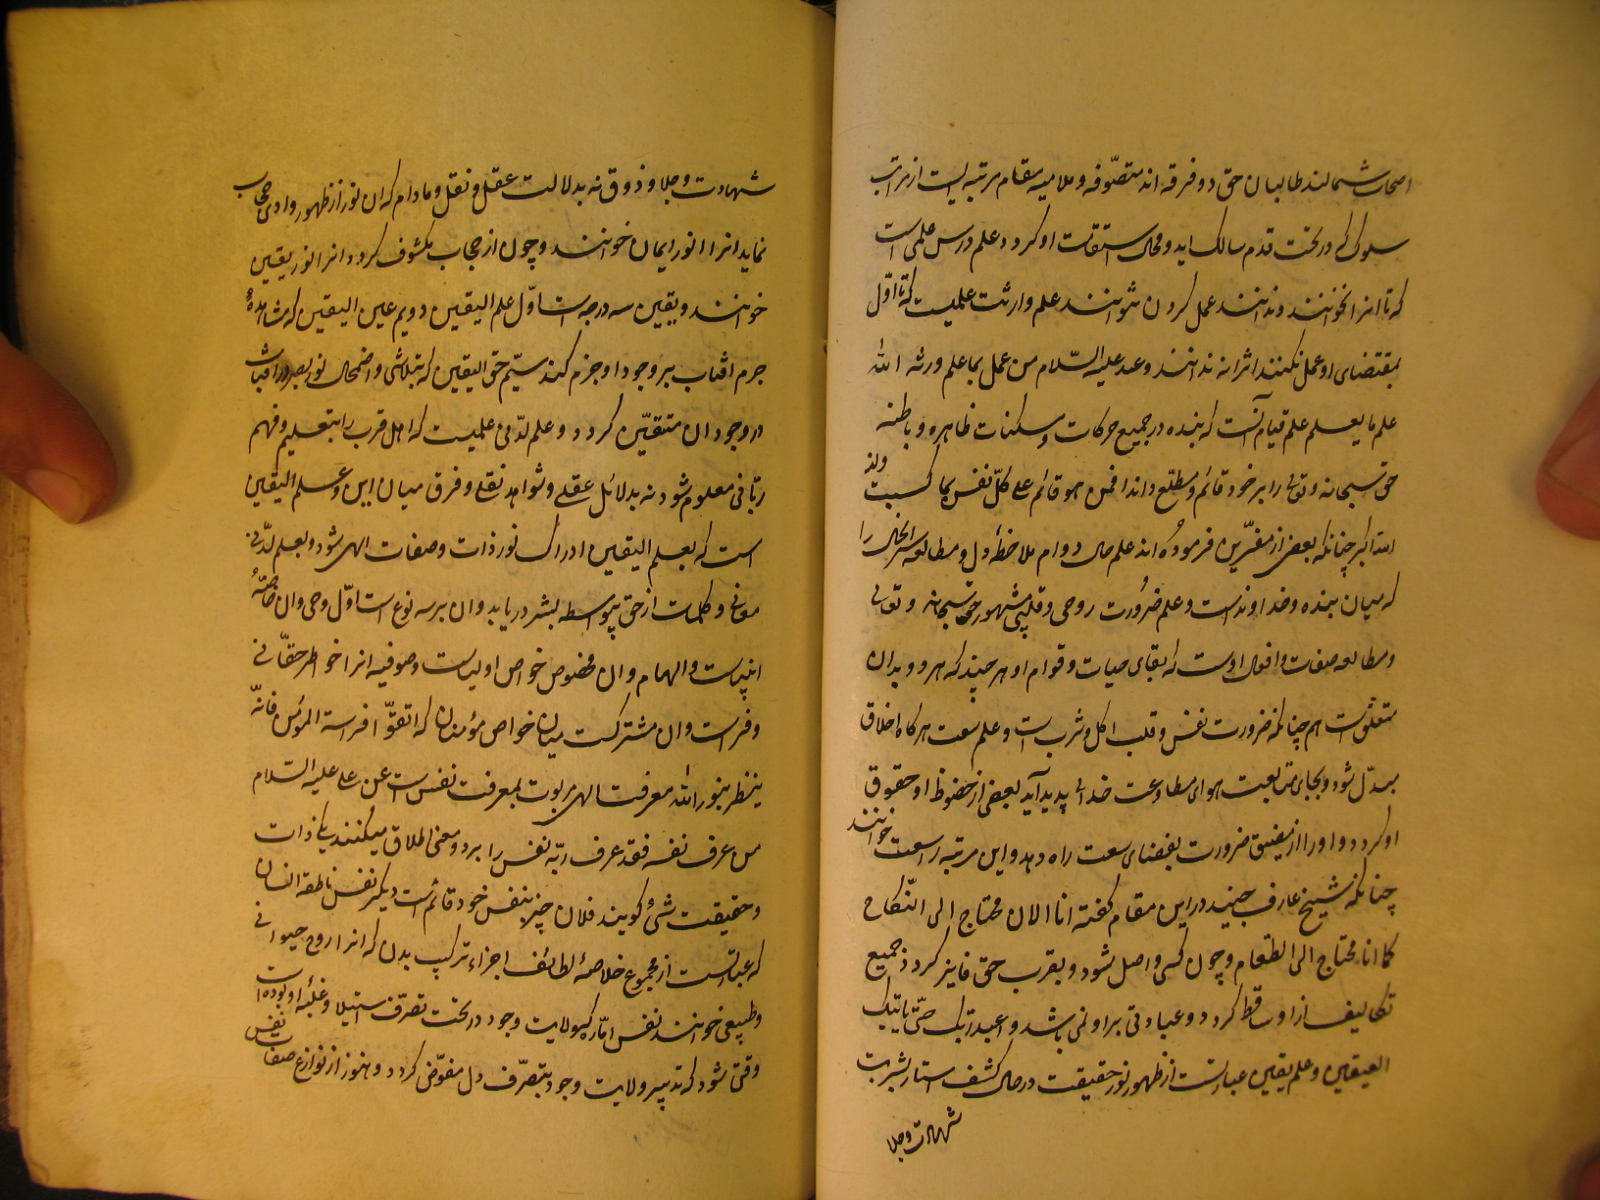 اصحاب شمالند طالبان حق دو فرقه اند متصوّفه و ملامیه مقام مرتبه ایست از مراتب
سلوک که در تحت قدم سالک اید و محل استقامت او کردد علم درس علمی است
که تا انرا نخوانند و ندانند عمل کردن نتوانند علم وراثت علمیست که تا اوّل
بمقتضای او عمل نکنند انرا نه ندانند و عنه علیه السّلام من عمل بما علم ورثه الله
علم ما یعلم علم قیام آنست که بنده در جمیع حرکات و سکنات ظاهره و باطنه
حق سبحانه و تعالی را بر خود قائم و مطلع داند افمن هو قائم علی کلّ نفس بما کسبت
الله اکبر چنانکه بعضی از مفسّرین فرموده اند علم حال دوام ملاحظهٔ دل و مطالعه سر الحال را
که میان بنده و خداوندست و علم ضرورت روحی و قلبی شهود حق سبحانه و تعالی
و مطالعه صفات و افعال اوست که بقای حیات و قوام او هر چند که هر دو بدان
متعلق است هم چنانکه ضرورت نفس و قلب اکل و شرب است و علم سعت هرکاه اخلاق
مبدّل شود و بجای متابعت هوای مطاوعت خدای پدید آید بعضی از حظوظ او حقوق
او کردد و او را از مضیق ضرورت بفضای سعت راه دهد و این مرتبه را سعت خوانند
چنانکه شیخ عارف جنید در این مقام کفته انا الان محتاج الی النّکاح
کما انا محتاج الی الطّعام و چون کسی واصل شود و بقرب حق فایز کردد جمیع
تکالیف از او ساقط کردد و عبادتی بر او نمی باشد و اعبد ربّک حتّی یاتیک
الیقین و علم یقین عبارتست از ظهور نور حقیقت در حال کشف استار بشریت
شهادت و جلا
شهادت و جلا و ذوق نه بدلالت عقل و نقل و مادام که ان نور از ظهور وادی حجاب
نماید انرا نور ایمان خوانند و چون از حجاب مکشوف کردد انرا نور یقین
خوانند و یقین سه درجه است اوّل علم الیقین دویم عین الیقین که مشاهدهٔ
جرم افتاب بر وجود او جزم کند سیّم حق الیقین که بتلاشی و اضمحلال نور بصر در افتاب
در وجود ان متیقّن کردد و علم لدّنی علمیست که اهل قرب را بتعلیم و فهم
ربّانی معلوم شود نه بدلائل عقلی و شواهد نقلی و فرق میان این و علم الیقین
است که بعلم الیقین ادراک نور ذات و صفات الهی شود و بعلم لدّنی
معانی و کلمات از حق بیواسطه بشر دریابد و ان بر سه نوع است اوّل وحی و ان خاصّهٔ
انبیاست و الهام و ان مخصوص خواص اولیاست و صوفیه انرا خواطر حقّانی
و فراست و ان مشترکست میان خواص مؤمنان که اتقوّا فراسة المؤمن فانّه
ینظر بنور الله معرفت الهی مربوت بمعرفت نفس است عن علی علیه السّلام
من عرف نفسه فقد عرف ربّه نفس را بر دو معنی اطلاق میکنند یکی ذات
و حقیقت شیٔ کویند فلان چیز بنفس خود قائمست دیکر نفس ناطقه انسان
که عبارتست از مجموع خلاصهٔ لطائف اجزاء ترکیب بدن که انرا روح حیوانی
و طبیعی خوانند نفس امّاره کیو ولایت وجود در تحت تصرّف استیلا و غلبهٔ او بوده است
وقتی شود که تدبیر ولایت وجود بتصرّف دل مفوّض کردد و هنوز از نوازع صفات نفس